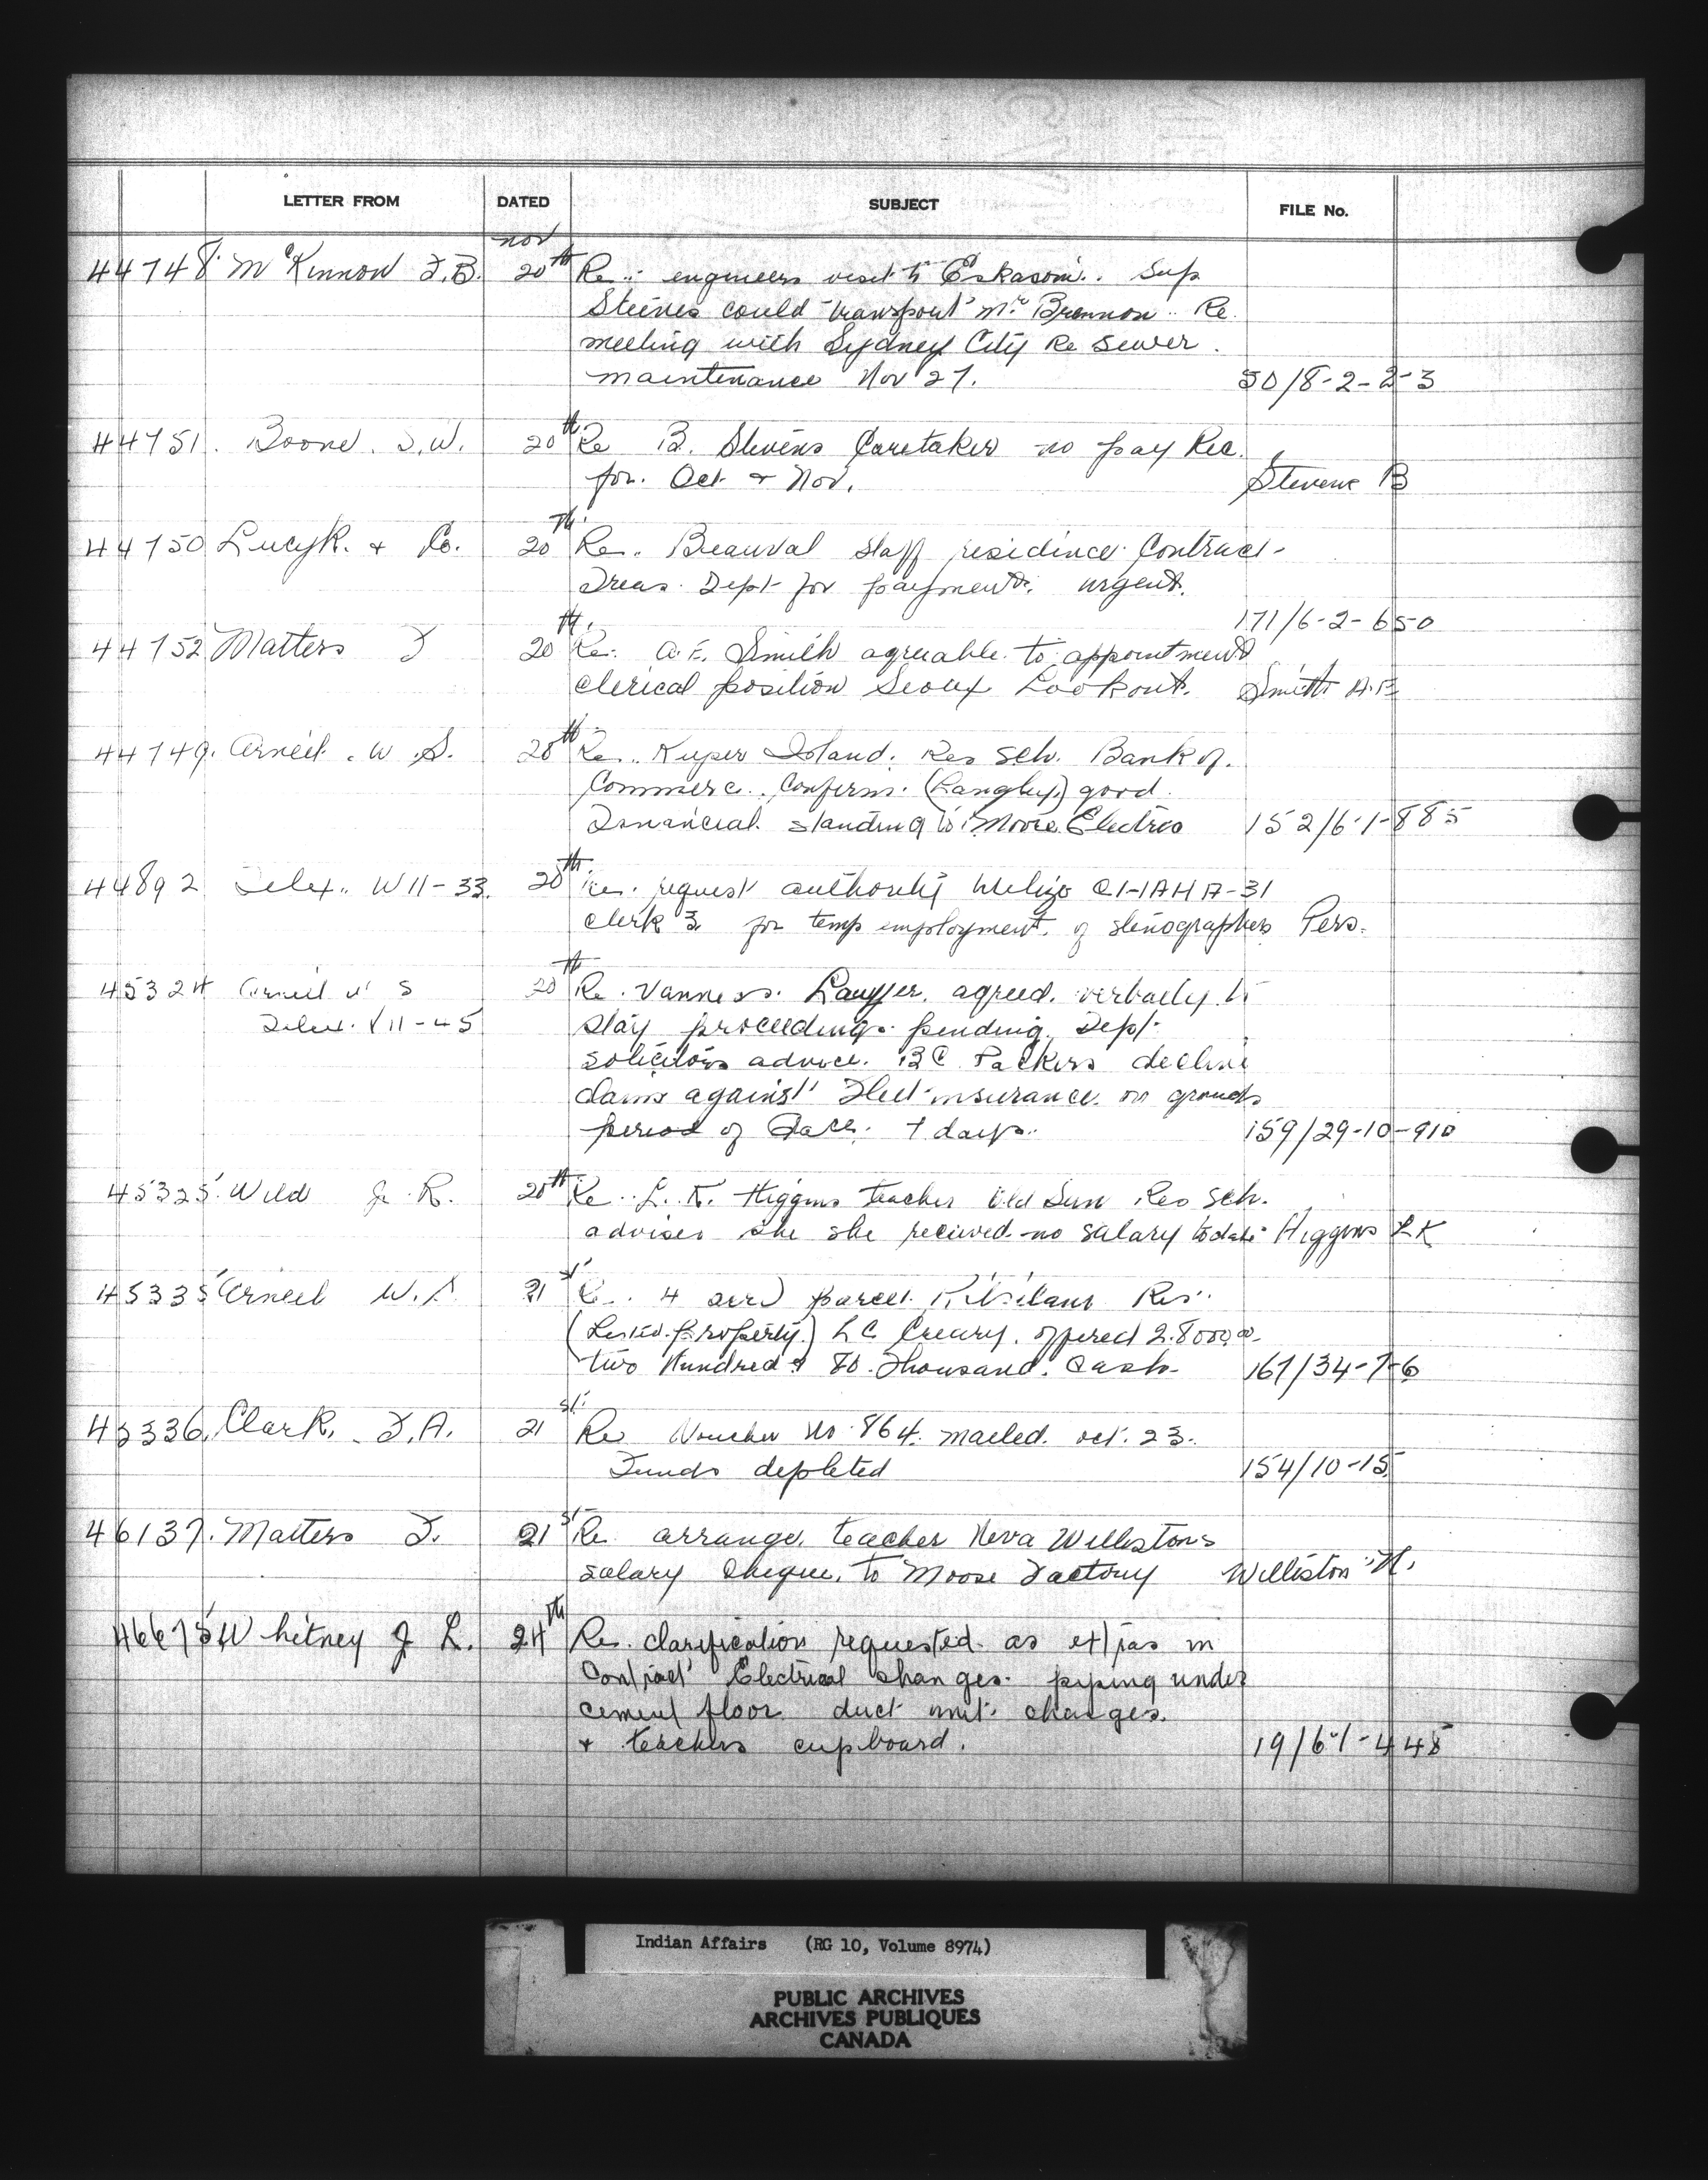 LETTER FROM DATED SUBJECT FILE No.
Nov
44748 McKinnon F.B. 20th Re. engineers visit to Eskasoni. Sup
Steeves could transport Mr. Brennon. Re
meeting with Sydney City Re sewer.
maintenance Nov 27. 50/8-2-2-3
44751. Boone. S.W. 20th Re B. Stevens Caretaker no pay Rec.
for. Oct & Nov. Stevens B
44750 Lucyk. & Co. 20th Re. Beauval staff residence Contract-
Treas. Dept for payment. urgent.
171/6-2-650
44752 Matters F 20th Re. A.E. Smith agreable to appointment
clerical position Sioux Lookout. Smith A.E
44749. Arneil. W.S. 20th Re. Kuper Island. Res Sch. Bank of.
Commerce. Confirm. (Langley) good.
Financial. standing to Moore Electric 152/6-1-885
44892 Telex. W11-33. 20th Re. request authority utilize C1-IAHA-31
clerk 3. for temp employment. of stenographers Pers.
45324 Arneil W S 20th Re. Vanness. Lawyer. agreed. verbally to
Telex. V11-45 stay proceedings. pending. Dept.
solicitors advice. BC Packers decline
claims against Fleet insurance. on grounds
period of Grace. 7 days. 159/29-10-910
45325. Wild J. R. 20th Re. L. K. Higgins teacher Old Sun Res Sch.
advises she she recieved no salary todate Higgins LK
45335 Arneil W.S 21st Re. 4 acre parcel Kitsilano Res.
(Leased property.) LC Creary. offered 2.8000.00
two Hundred & 80. Thousand. Cash. 167/34-7-6
45336. Clark. F.A. 21st. Re Voucher No. 864. mailed. oct. 23.
Funds depleted 154/10-15
46137. Matters F. 21st Re. arrange. teacher Neva Willistons
salary cheque. to Moose Factory Williston N.
46675 Whitney J L. 24th Re. clarification requested. as extras in
Contract Electrical changes. piping under
cement floor duct unit changes.
& teachers cupboard. 19/6-1-445
Indian Affairs (RG 10, Volume 8974)
PUBLIC ARCHIVES
ARCHIVES PUBLIQUES
CANADA